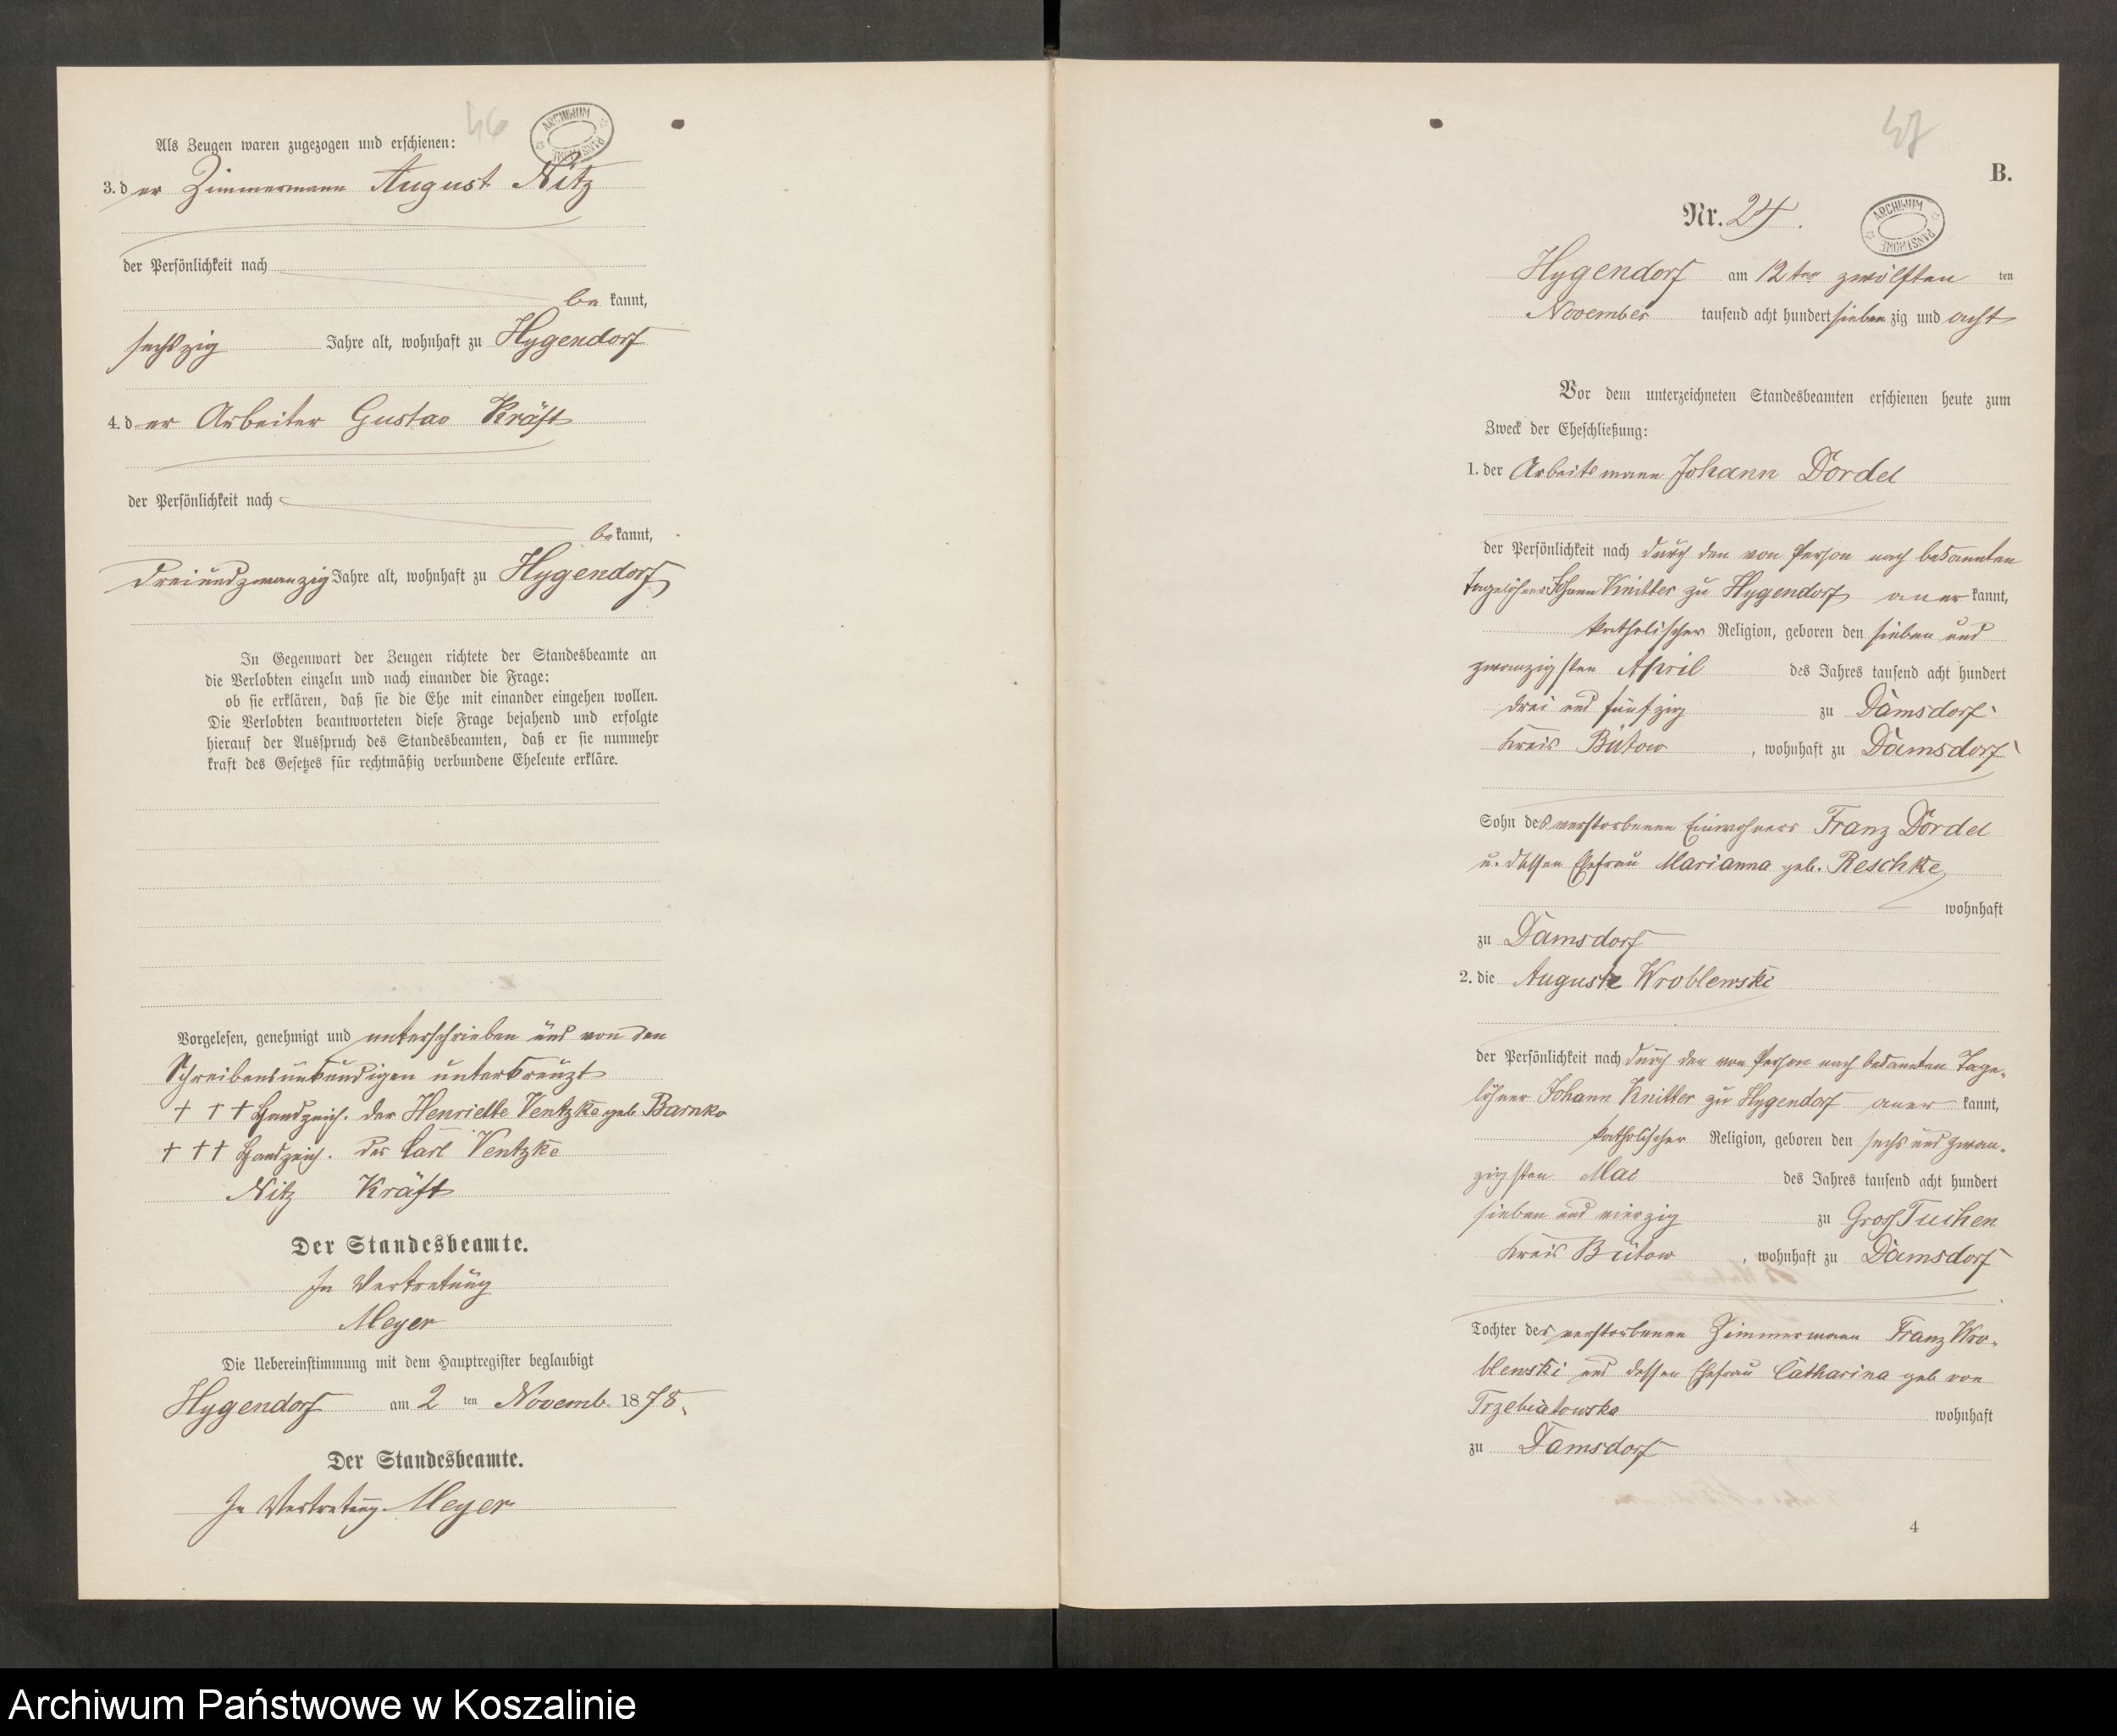 46
ARCHIWUM PAŃSTWOWE
Als Zeugen waren zugezogen und erschienen:
3. der Zimmermann August Nitz
der Persönlichkeit nach
bekannt,
sechszig Jahre alt, wohnhaft zu Hygendorf
4. der Arbeiter Gustav Kräft
der Persönlichkeit nach
bekannt,
dreiundzwanzig Jahre alt, wohnhaft zu Hygendorf
In Gegenwart der Zeugen richtete der Standesbeamte an
die Verlobten einzeln und nach einander die Frage:
ob sie erklären, daß sie die Ehe mit einander eingehen wollen.
Die Verlobten beantworteten diese Frage bejahend und erfolgte
hierauf der Ausspruch des Standesbeamten, daß er sie nunmehr
kraft des Gesetzes für rechtmäßig verbundene Eheleute erkläre.
Vorgelesen, genehmigt und unterschrieben und von den
Schreibensunkundigen unterkreuzt
+ + + Handzeich. der Henriette Ventzke geb. Barnko
+ + + Handzeich. des Carl Ventzke
Nitz Kräft
Der Standesbeamte.
In Vertretung
Meyer
Die Uebereinstimmung mit dem Hauptregister beglaubigt
Hygendorf am 2 ten Novemb. 1878.
Der Standesbeamte.
In Vertretung Meyer
47
B.
Nr. 24.
ARCHIWUM PAŃSTWOWE
Hygendorf am 12ten zwölften ten
November tausend acht hundert siebenzig und acht
Vor dem unterzeichneten Standesbeamten erschienen heute zum
Zweck der Eheschließung:
1. der Arbeitsmann Johann Dordel
der Persönlichkeit nach durch den von Person nach bekannten
Tagelöhner Johann Knitter zu Hygendorf anerkannt,
katholischer Religion, geboren den sieben und
zwanzigsten April des Jahres tausend acht hundert
drei und fünfzig zu Damsdorf
Kreis Bütow, wohnhaft zu Damsdorf
Sohn des verstorbenen Einwohners Franz Dordel
u. dessen Ehefrau Marianna geb. Reschke,
wohnhaft
zu Damsdorf
2. die Auguste Wroblewski
der Persönlichkeit nach durch den von Person nach bekannten Tage-
löhner Johann Knitter zu Hygendorf anerkannt,
katholischer Religion, geboren den sechs und zwan-
zigsten Mai des Jahres tausend acht hundert
sieben und vierzig zu Gross Tuchen
Kreis Bütow, wohnhaft zu Damsdorf
Tochter des verstorbenen Zimmermann Franz Wro-
blewski und dessen Ehefrau Catharina geb von
Trzebiatowska wohnhaft
zu Damsdorf
4
Archiwum Państwowe w Koszalinie